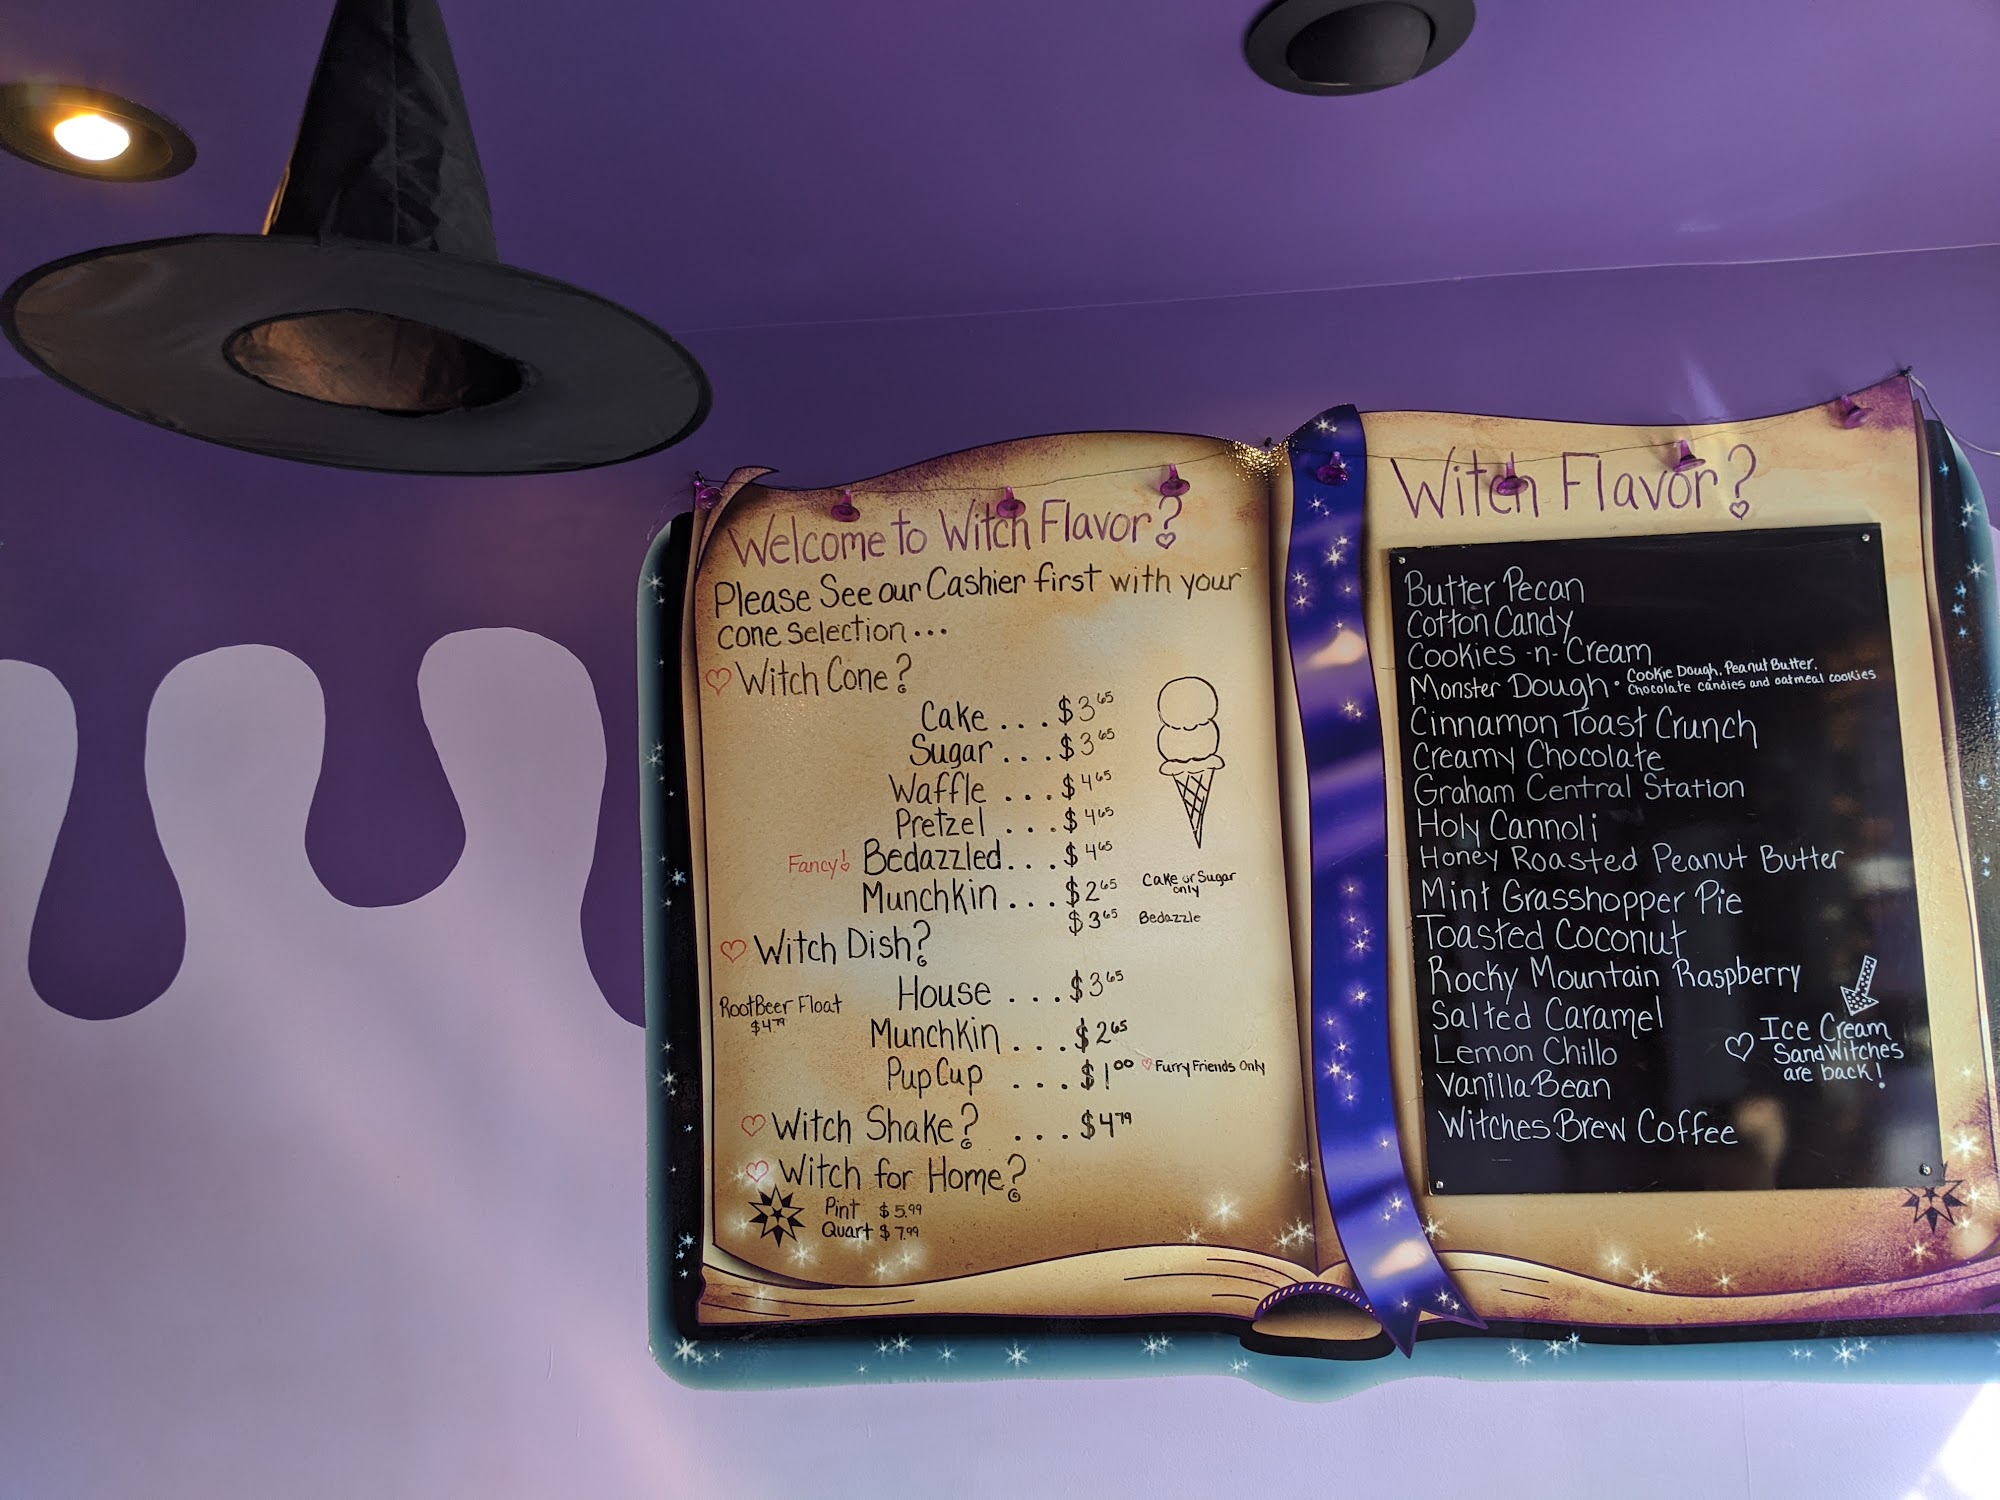 Welcome to Witch Flavor?
Please See our Cashier first with your
cone selection...
Witch Cone?
Cake ... $3 65
Sugar ... $3 65
Waffle ... $4 65
Pretzel ... $4 65
Fancy! Bedazzled... $4 65
Munchkin ... $2 65 Cake or Sugar only
$3 65 Bedazzle
Witch Dish?
House ... $3 65
RootBeer Float
$4.79
Munchkin ... $2 65
Pup Cup ... $1 00 Furry Friends Only
Witch Shake? ... $4 79
Witch for Home?
Pint $5.99
Quart $7.99
Witch Flavor?
Butter Pecan
Cotton Candy
Cookies -n- Cream
Monster Dough • Cookie Dough, Peanut Butter,
Chocolate candies and oatmeal cookies
Cinnamon Toast Crunch
Creamy Chocolate
Graham Central Station
Holy Cannoli
Honey Roasted Peanut Butter
Mint Grasshopper Pie
Toasted Coconut
Rocky Mountain Raspberry
Salted Caramel
Lemon Chillo
Vanilla Bean
Witches Brew Coffee
Ice Cream
SandWitches
are back!